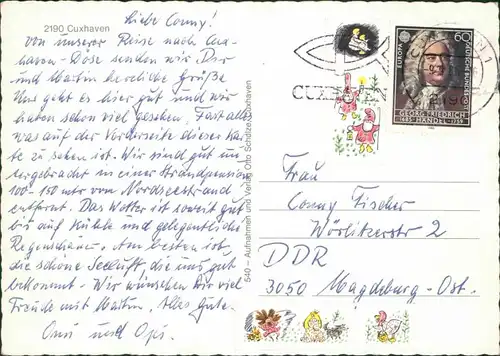 2190 Cuxhaven
Liebe Conny!
Von unserer Reise nach Cux-
haven-Döse senden wir Dir
und Martin herzliche Grüße
Uns geht es hier gut und wir
haben schon viel gesehen. Fast alles
was auf der Vorderseite dieser Kar-
te zu sehen ist. Wir sind gut un-
tergebracht in einer Strandpension
100-150 mtr vom Nordseestrand
entfernt. Das Wetter ist soweit gut
bis auf Kühle und gelegentliche
Regenschauer. Am besten ist,
die schöne Seeluft die uns gut
bekommt. Wir wünschen Dir viel
Freude mit Martin, Alles Gute.
Omi und Opi.
540 – Aufnahmen und Verlag Otto Schütze, Cuxhaven
CUXHAVEN
EUROPA
60
DEUTSCHE BUNDESPOST
GEORG FRIEDRICH
1685 HÄNDEL 1759
Frau
Conny Fischer
Wörlitzerstr 2
DDR
3050 Magdeburg-Ost.